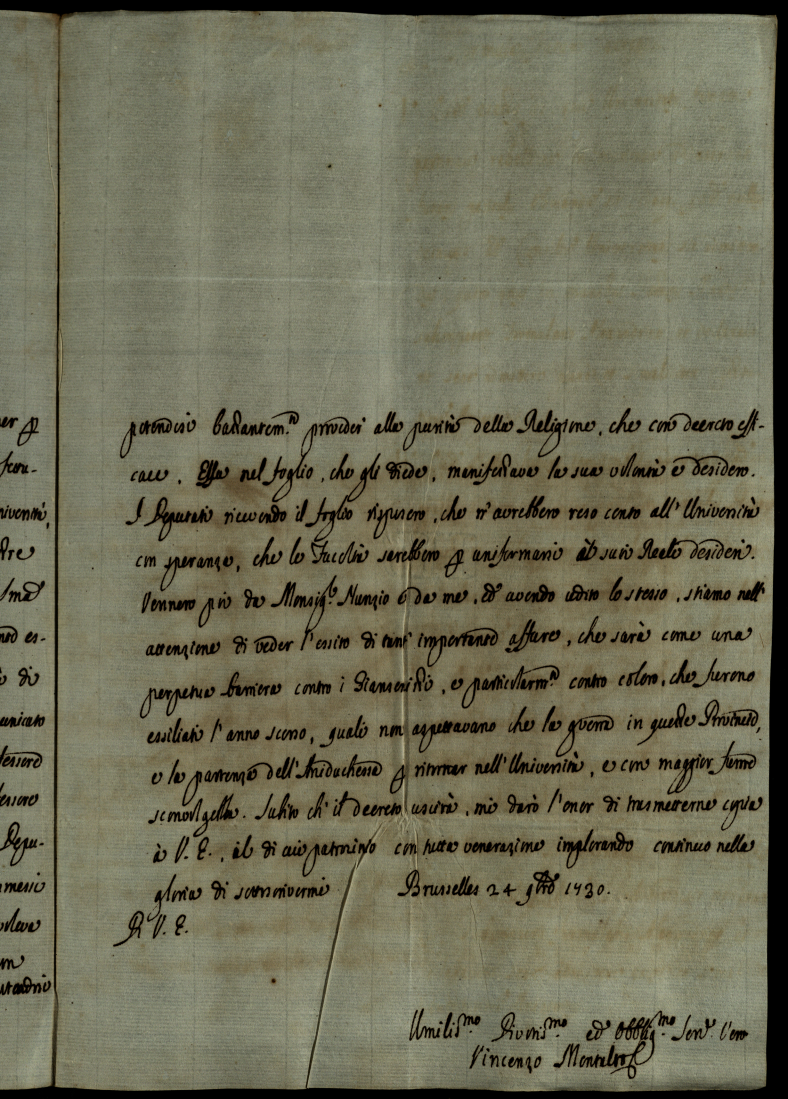 potendosi bastantem.te proveder alla purità della Religione, che con decreto effi-
cace. Essa nel foglio, che gli diede, manifestava la sua volontà e desidero.
I Deputati ricevendo il foglio risposero, che n'avrebbero reso conto all'Università
con speranza, che le Facoltà sarebbero p uniformarsi à suoi Reali desideri.
Vennero poi da Monsig.r Nunzio e da me, ed avendo udito lo stesso, stiamo nell'
attenzione di veder l'essito di tant' importante affare, che sarà come una
perpetua barriera contro i Giansenisti, e particolarm.te contro coloro, che furono
essiliati l'anno scorso, quali non aspettavano che la guerra in queste Provincie,
e la partenza dell'Arciduchessa p ritornar nell'Università, e con maggior furore
sconvolgella. Subito ch'il decreto uscirà, mi darò l'onor di trasmetterne copia
à V. E., al di cui patrocinio con tutta venerazione implorando continuo nella
gloria di sottoscrivermi Brusselles 24 9bre 1730.
V. E.
Umiliss.mo Divotis.mo ed Obblig.mo Serv.e vero
Vincenzo Montalto
er p
niversità,
stre
nto es-
di
unicato
fessore
fessore
Depu-
mmessi
voleva